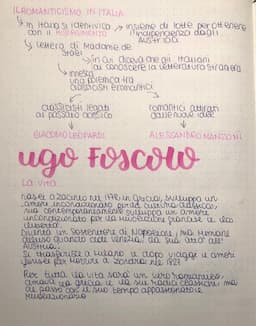 IL ROMANTICISMO IN ITALIA
in Italia si identifica con il RISORGIMENTO
insieme di lotte per ottenere l'indipendenza dagli Austriaci
lettera di Madame de Stael
in cui diceva che gli italiani
di conoscere la letteratura straniera
innesca una polemica tra classicisti e romantici
classicisti legati al passato classico
romantici attirati dalle nuove idee
GIACOMO LEOPARDI
ALESSANDRO MANZONI
ugo Foscolo
LA VITA
nasce a Zacinto nel 1778 in Grecia, sviluppa un
amore incondizionato per la cultura classica,
ma contemporaneamente sviluppa un amore
incondizionato per la rivoluzione francese le idee
libertà.
Quindi un sostenitore di Napoleone, ma rimane
deluso quando cede Venezia, la sua città all'
Austria.
Si trasferisce a Milano e dopo viaggi e amori
finisce per morire a Londra nel 1827
Per tutta la vita sarà un vero romantico,
amava la grecia e le sue radici classiche, ma
al passo con il suo tempo appassionato e
rivoluzionario